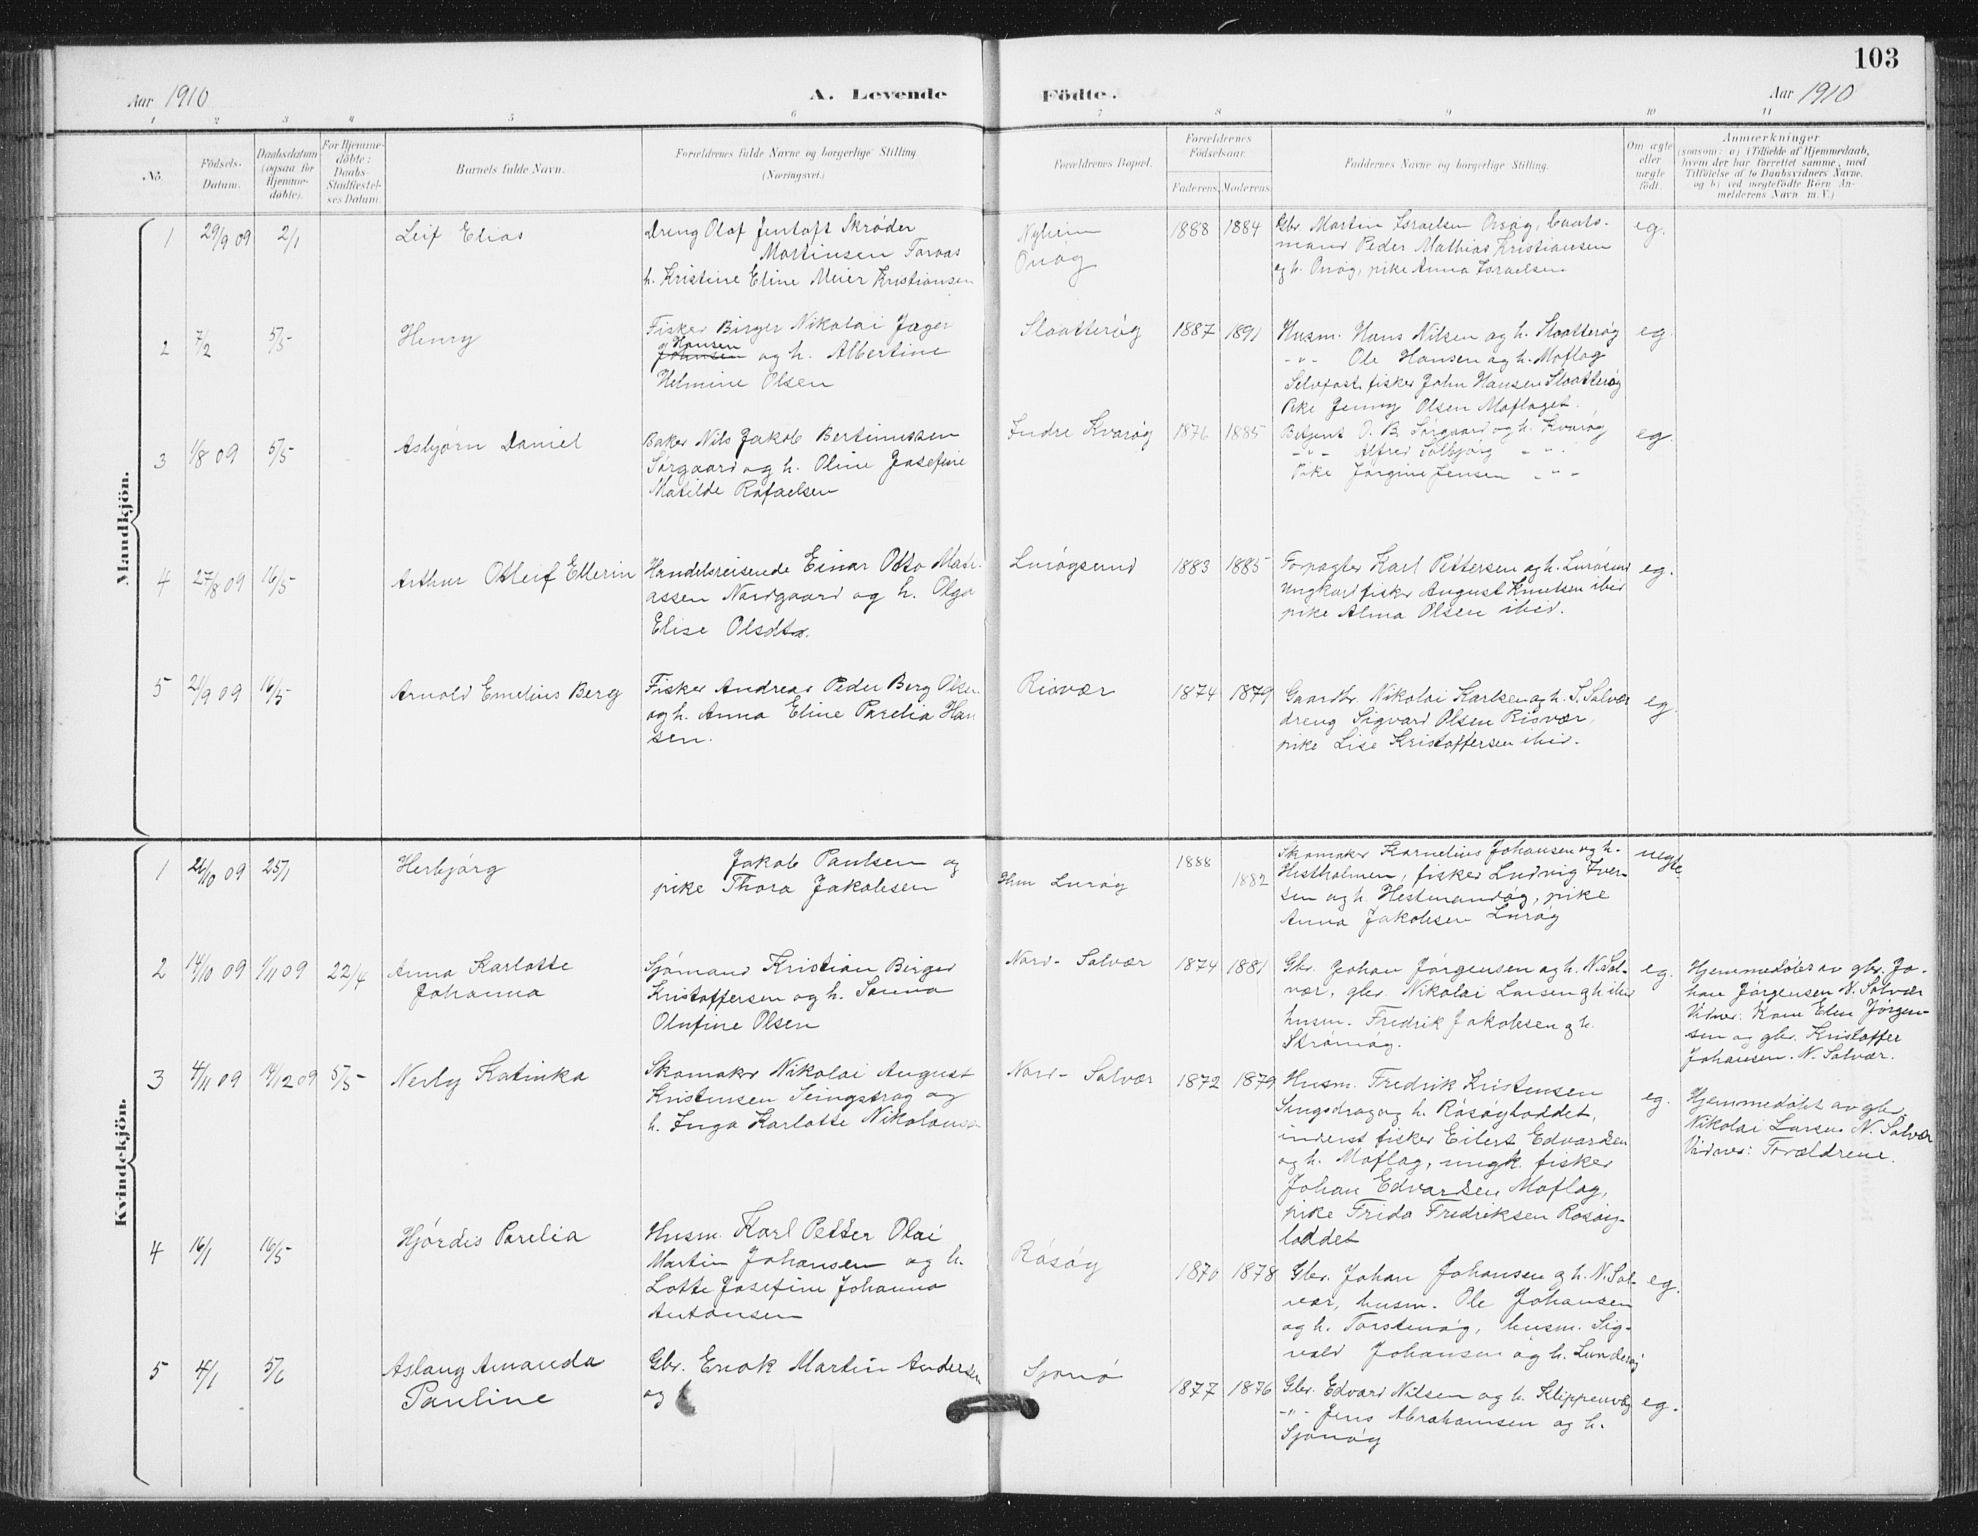 103
Aar 1910
A. Levende
Födte.
Aar 1910
1
2
3
4
5
6
7
8
9
10
11
No.
Födsels-
Datum.
Daabsdatum
(ogsaa for
Hjemme-
döbte).
For Hjemme-
döbte:
Daabs-
Stadfæstel-
ses Datum.
Barnets fulde Navn.
Forældrenes fulde Navne og borgerlige Stilling
(Næringsvei.)
Forældrenes Bopæl.
Forældrenes
Födselsaar.
Faderens.
Moderens.
Faddernes Navne og borgerlige Stilling.
Om ægte
eller
uægte
födt.
Anmærkninger
(saasom: a) i Tilfælde af Hjemmedaab,
hvem der har forrettet samme, med
Tilföielse af to Daabsvidners Navne,
og b) ved uægtefödte Börn An-
melderens Navn m.V.)
Mandkjön.
1
29/9 09
2/1
Leif Elias
Dreng Olaf Jentoft Skrøder
Martinsen Foraas
h. Kristine Eline Meier Kristiansen
Nyheim
Onøg
1888
1884
Gbr Martin Israelsen Onøg, baats-
mand Peder Mathias Kristiansen
og h. Onøg, pike Anna Israelsen
eg.
2
7/2
5/5
Henry
Fisker Birger Nikolai Jæger
Hansen
Johansen og h. Albertine
Helmine Olsen
Slaatterøg
1887
1891
Husm. Hans Nilsen og h. Slaatterøg
-"- Ole Hansen og h. Moflag
Selvfost. fisker John Hansen Slaatterøg
Pike Jenny Olsen Moflaget.
eg.
3
1/8 09
5/5
Asbjørn Daniel
Baker Nils Jakob Bertinussen
Sørgaard og h. Oline Josefine
Matilde Rafaelsen
Indre Kvarøg
1876
1885
Betjent O. B. Sørgaard og h. Kvarøg
-"- Alfred Solbjørg -"-
Pike Jørgine Jensen -"-
eg.
4
27/8 09
16/5
Arthur Otleif Ellerin
Handelsreisende Einar Otto Mati-
assen Nordgaard og h. Olga
Elise Olsdtr.
Lurøgsund
1883
1885
Forpagter Karl Pettersen og h. Lurøsund
ungkarl fisker August Knutsen ibid
pike Alma Olsen ibid.
eg.
5
21/9 09
16/5
Arnold Emelius Berg
Fisker Andreas Peder Berg Olsen
og h. Anna Eline Parelia Han
sen.
Risvær
1874
1879
Gaardbr. Nikolai Karlsen og h. S. Solvær
dreng Sigvard Olsen Risvær,
pike Lise Kristoffersen ibid.
eg.
Kvindekjön.
1
26/10 09
25/1
Herbjørg
Jakob Paulsen og
pike Thora Jakobsen
Hum Lurøg
1888
1882
Skomaker Kornelius Johansen og h.
Hestholmen, fisker Ludvig Iver-
sen og h. Hestmandøg, pike
Anna Jakobsen Lurøg
uegte
2
14/10 09
1/11 09
22/4
Anna Karlotte
Johanna
Sjømand Kristian Birger
Kristoffersen og h. Sanna
Olufine Olsen
Nord- Solvær
1874
1881
Gbr. Johan Jørgensen og h. N. Sol-
vær, gbr. Nikolai Larsen og h ibid
husm. Fredrik Jakobsen og h.
Strømøg.
eg.
Hjemmedøbt av gbr. Jo-
han Jørgensen N. Solvær
Vidner: Kone Elen Jørgen-
sen og gbr. Kristoffer
Johansen. N. Solvær.
3
4/11 09
14/12 09
5/5
Nerly Katinka
Skomaker Nikolai August
Kristensen Seingstrag og
h. Inga Karlotte Nikolaus
Nord- Solvær
1872
1879
Husm. Fredrik Kristensen
Singsdrag og h. Røsøgloddet,
inderst fisker Eilert Edvardsen
og h. Moflag, ungk. fisker
Johan Edvardsen Moflag,
pike Frida Fredriksen Rosøg-
loddet
eg.
Hjemmedøbt av gbr.
Nikolai Larsen N. Solvær
Vidner: Forældrene.
4
16/1
16/5
Hjørdis Parelia
Husm. Karl Petter Olai
Martin Johansen og h.
Lotte Josefine Johanna
Antonsen
Røsøg
1870
1878
Gbr. Johan Johansen og h. N. Sol-
vær, husm. Ole Johansen
og h. Torstenøg, husm. Sig-
vald Johansen og h. Lunderøg
eg.
5
4/1
5/6
Aslaug Amanda
Pauline
Gbr. Enok Martin Andersen
og
Sjonø
1877
1876
Gbr. Edvard Nilsen og h. Klippenvåg
-"- Jens Abrahamsen og h.
Sjonøg
eg.